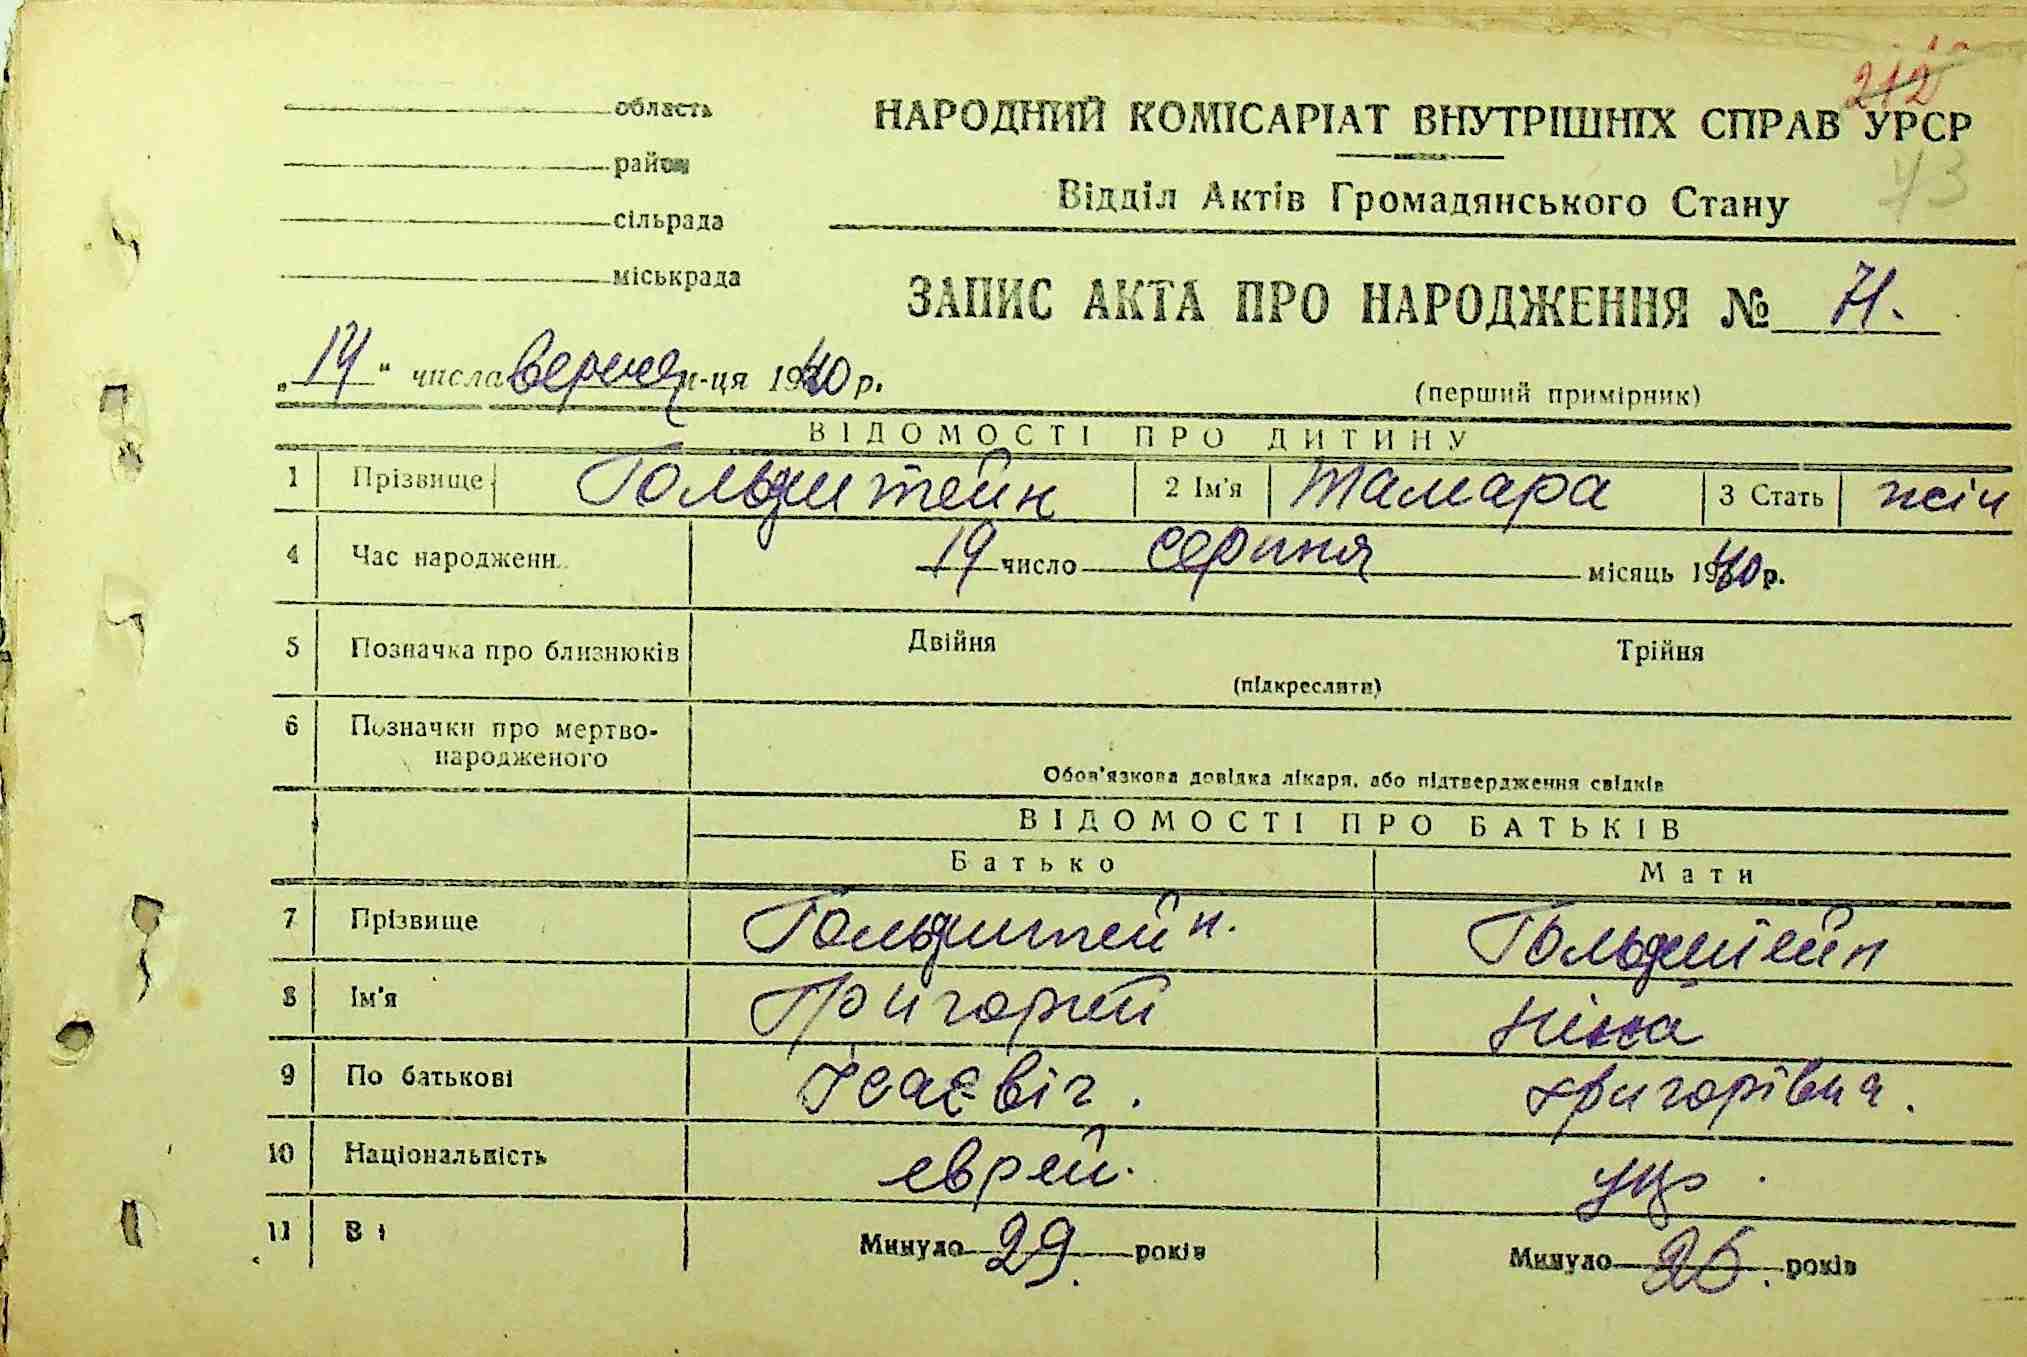 212
область
НАРОДНИЙ КОМІСАРІАТ ВНУТРІШНІХ СПРАВ УРСР
район
73
Відділ Актів Громадянського Стану
сільрада
міськрада
ЗАПИС АКТА ПРО НАРОДЖЕННЯ № 71.
„14" числа вересня м-ця 1940 р.
(перший примірник)
ВІДОМОСТІ ПРО ДИТИНУ
1 Прізвище Гольдштейн 2 Ім'я Тамара 3 Стать жін
4 Час народженн 19 число серпня місяць 1940 р.
5 Позначка про близнюків Двійня Трійня
(підкреслити)
6 Позначки про мертво-
народженого
Обов'язкова довідка лікаря, або підтвердження свідків
ВІДОМОСТІ ПРО БАТЬКІВ
Батько Мати
7 Прізвище Гольдштейн. Гольдштейн
8 Ім'я Григорій Ніна
9 По батькові Ісаєвіч. Григорівна.
10 Національність еврей. укр.
11 Ві Минуло 29. років Минуло 26. років